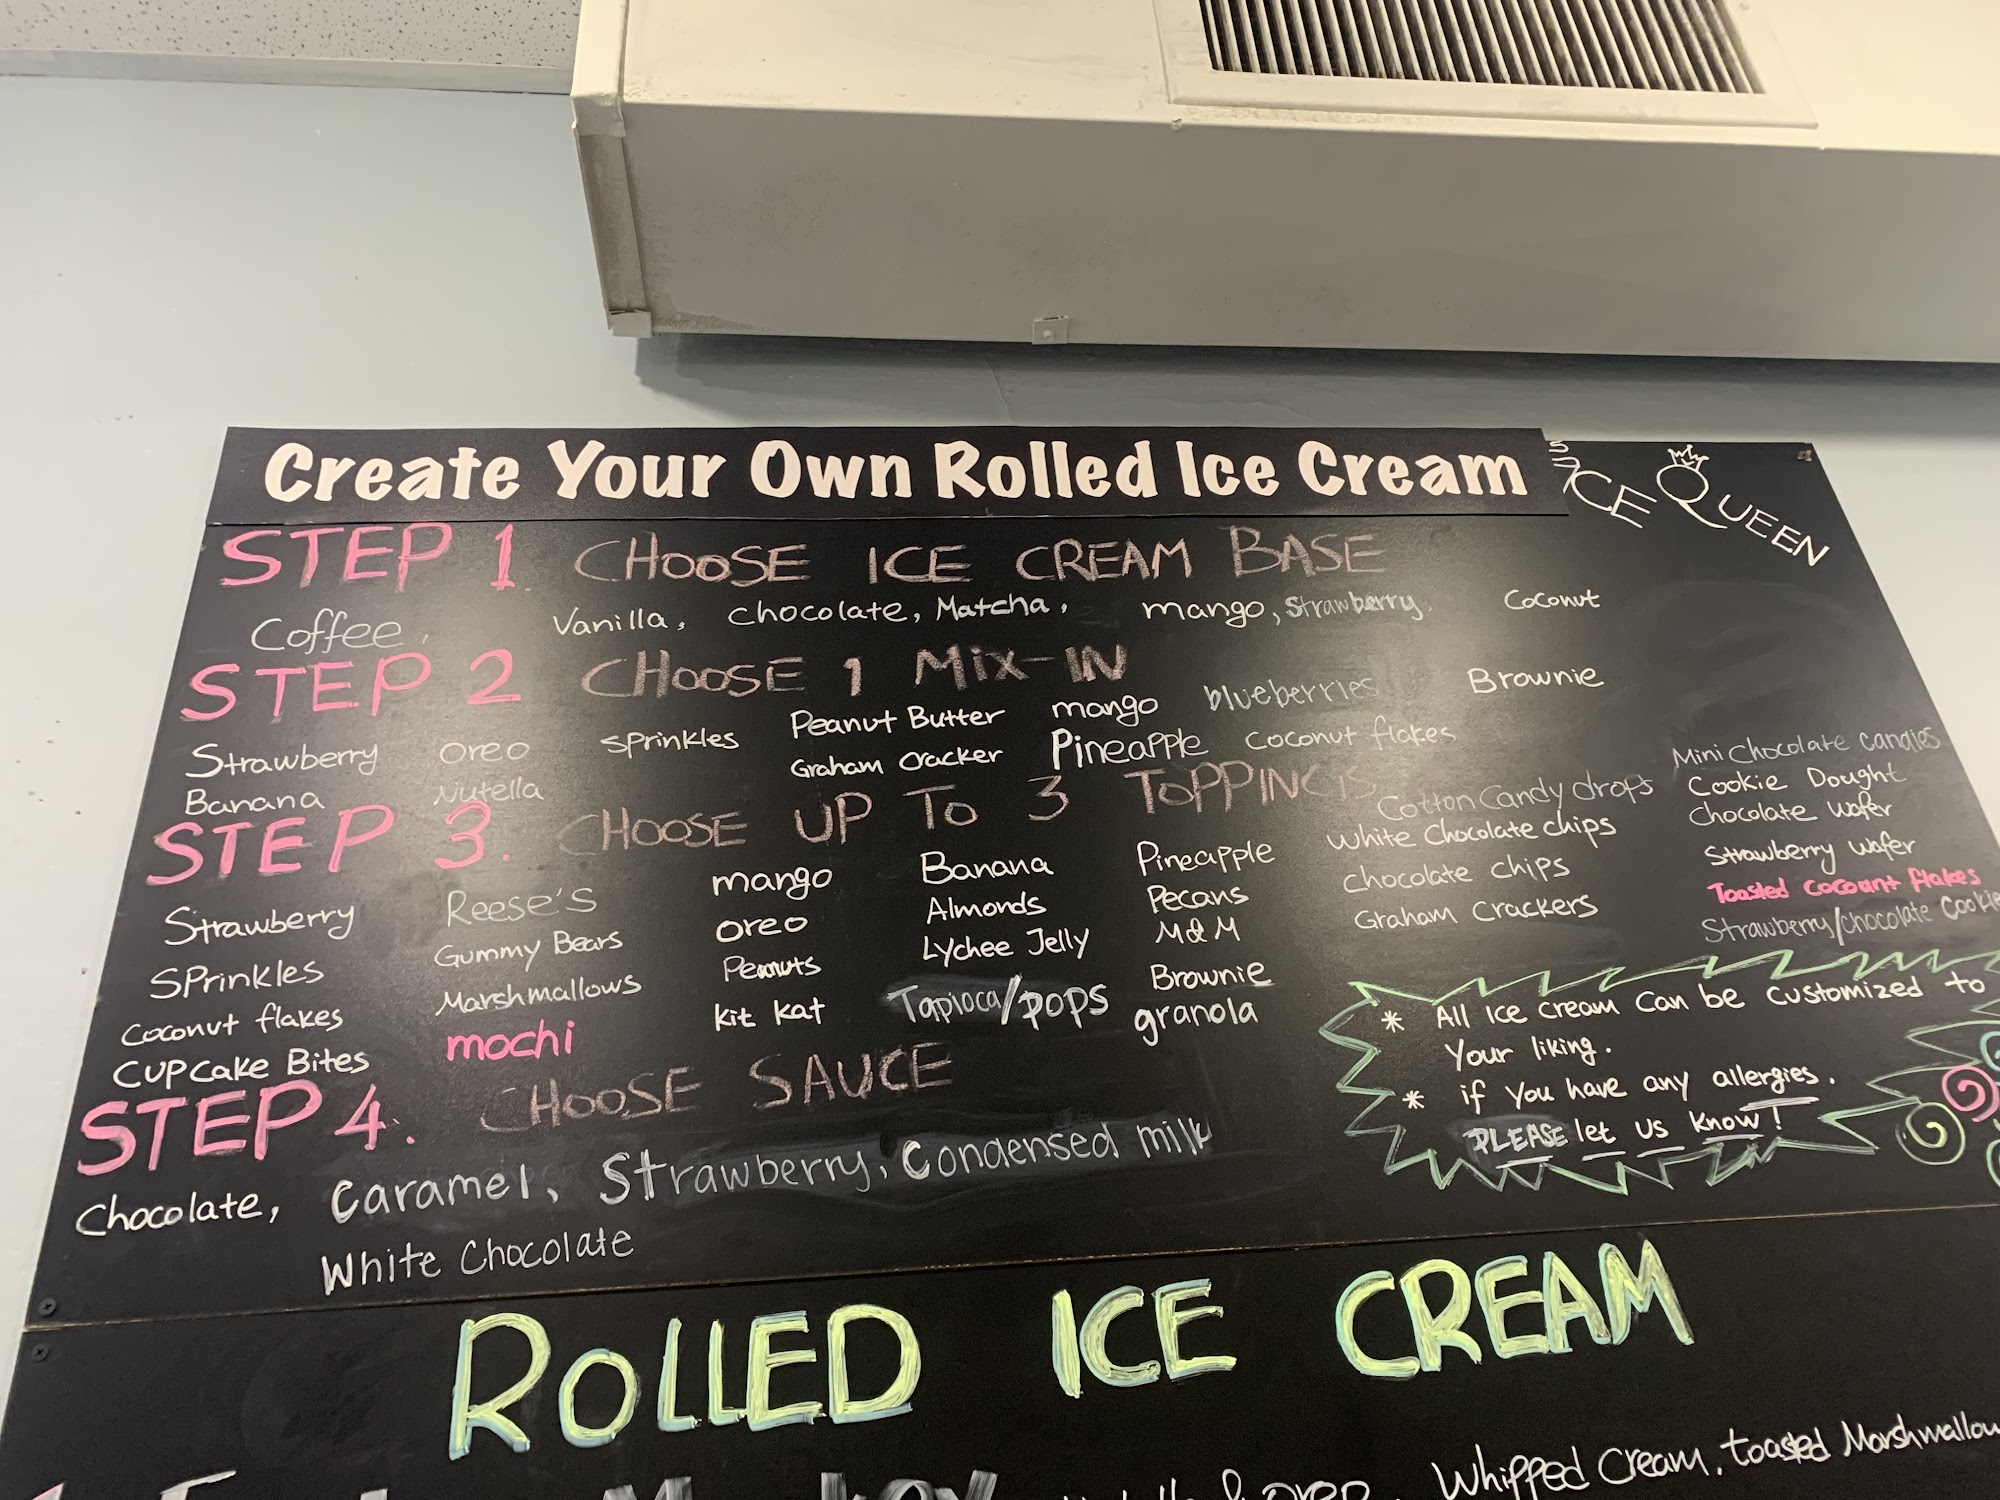 Create Your Own Rolled Ice Cream
ICE QUEEN
STEP 1 CHOOSE ICE CREAM BASE
Coffee, Vanilla, Chocolate, Matcha, mango, Strawberry, Coconut
STEP 2 CHOOSE 1 Mix-IN
Strawberry Oreo Sprinkles Peanut Butter mango blueberries Brownie
Banana Nutella Graham Cracker Pineapple Coconut flakes
STEP 3. CHOOSE UP TO 3 TOPPINGS
Strawberry Reese's mango Banana Pineapple Cotton Candy drops Mini Chocolate Candies
Sprinkles Gummy Bears Oreo Almonds Pecans White Chocolate chips Cookie Dought
Coconut flakes Marshmallows Peanuts Lychee Jelly M&M Chocolate chips Chocolate Wafer
CUPCake Bites mochi kit kat Tapioca/pops Brownie Graham Crackers Strawberry Wafer
granola Toasted Cocount flakes
Strawberry/Chocolate Cookie
STEP 4. CHOOSE SAUCE
Chocolate, Caramel, Strawberry, Condensed milk
White Chocolate
* All Ice Cream Can be Customized to
Your liking.
* if You have any allergies.
PLEASE let us know!
ROLLED ICE CREAM
Whipped Cream, toasted Marshmallow